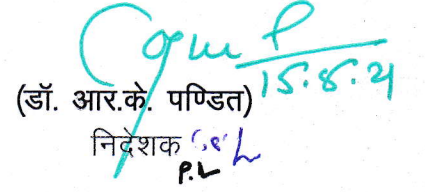 15.8.21
(डॉ. आर.के. पण्डित)
निदेशक
P.L